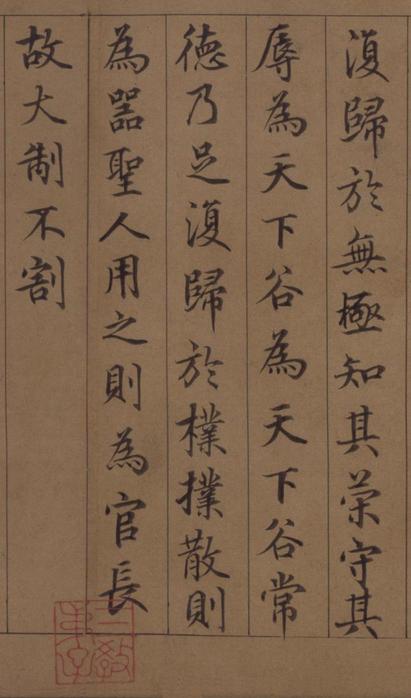 復歸於無極知其榮守其
辱為天下谷為天下谷常
徳乃足復歸於樸撲散則
為器聖人用之則為官長
故大制不割